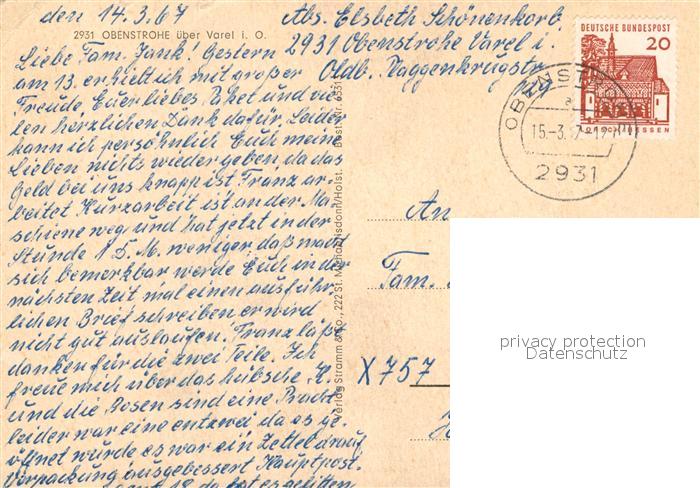 den 14.3.67
2931 OBENSTROHE über Varel i. O.
Liebe Fam. Jank! Gestern
am 13. erhielt ich mit großer
Freude Euer liebes Paket und vie-
len herzlichen Dank dafür. Leider
kann ich persönlich Euch meine
Lieben nichts wiedergeben da das
Geld bei uns knapp ist Franz ar-
beitet Kurzarbeit ist an der Ma-
schiene weg, und hat jetzt in der
Stunde 1 D. M. weniger, daß macht
sich bemerkbar werde Euch in der
nächsten Zeit mal einen ausführ-
lichen Brief schreiben er wird
nicht gut auslaufen. Franz läßt
danken für die zwei Teile. Ich
freue mich über das hübsche K.
und die Dosen sind eine Pracht
leider war eine entzwei da es ge-
öffnet wurde es war ein Zettel drauf
Verpackung ausgebessert Hauptpost.
amt 18 da hat es gelitten
Abs. Elsbeth Schönenkorb
2931 Obenstrohe Varel i.
Oldb. Naggenkrugstr.
Verlag Stramm & Co., 222 St. Michaelisdonn/Holst. Best.-Nr.
DEUTSCHE BUNDESPOST
20
LORSCH/HESSEN
OBENST
a
15-3.
2931
An
Fam.
X757
privacy protection
Datenschutz